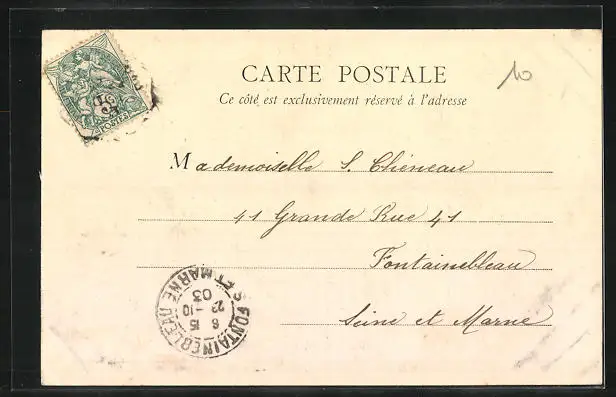 POSTES
10
CARTE POSTALE
Ce côté est exclusivement réservé à l'adresse
Mademoiselle S. Chéneau
41 Grande Rue 41
Fontainebleau
Seine et Marne
FONTAINEBLEAU
ET MARNE
6 15
23 -10
03